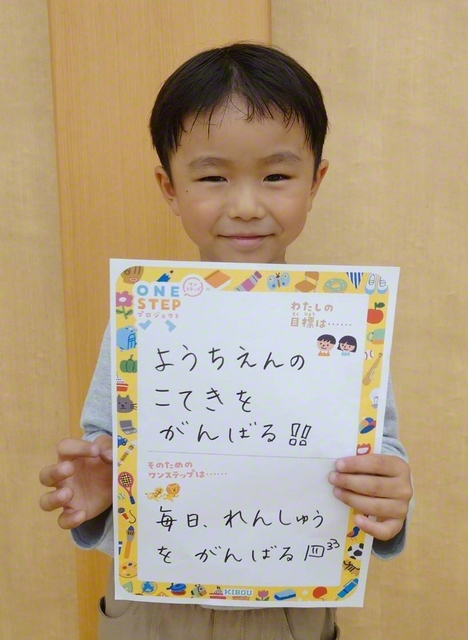 ONE
STEP
プロジェクト
わたしの
もくひょう
目標は……
ようちえんの
こてきを
がんばる!!
そのための
ワンステップは……
毎日、れんしゅう
を がんばる
KIBOU